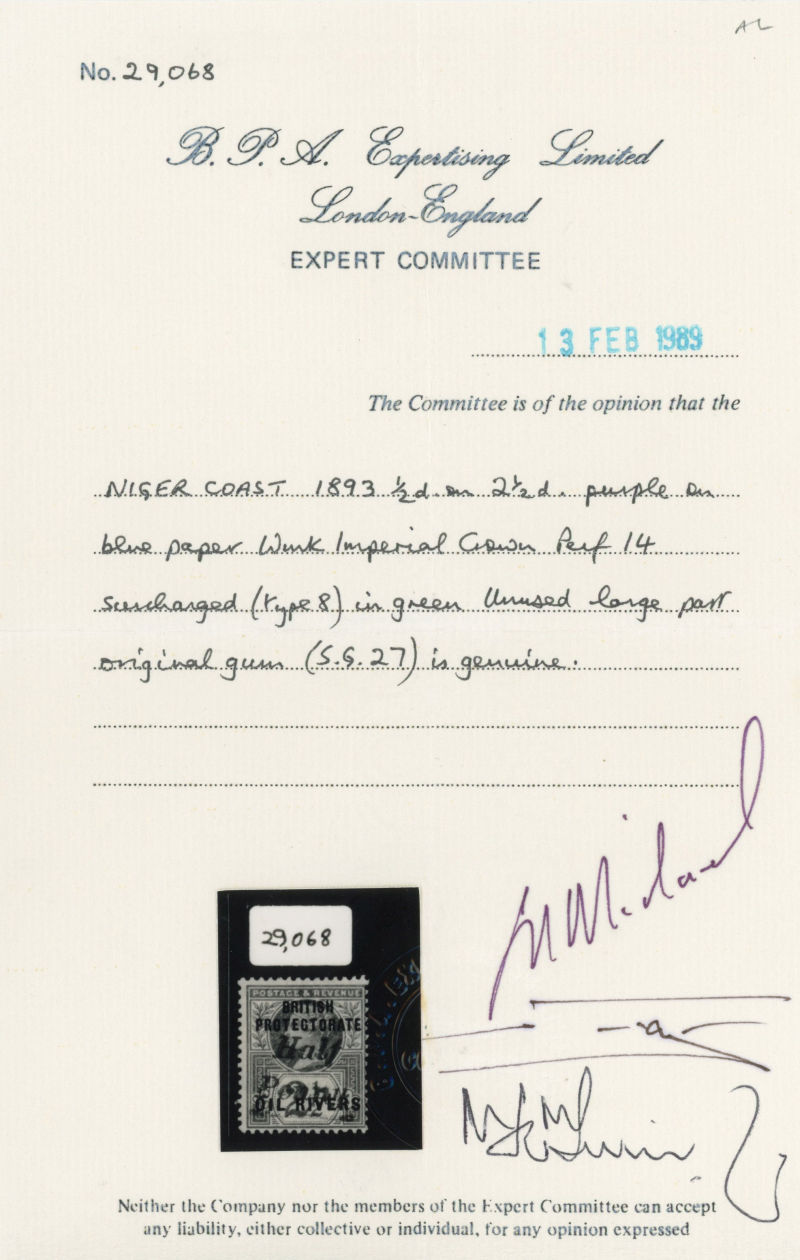 AL
No. 29,068
B. P. A. Expertising Limited
London-England
EXPERT COMMITTEE
13 FEB 1989
The Committee is of the opinion that the
NIGER COAST 1893 ½d on 2½d. purple on
blue paper Wmk Imperial Crown Perf 14
surcharged (type 8) in green Unused large part
original gum (S.G. 27) is genuine.
29,068
POSTAGE & REVENUE
BRITISH
PROTECTORATE
Half
OIL RIVERS
Neither the Company nor the members of the Expert Committee can accept
any liability, either collective or individual, for any opinion expressed